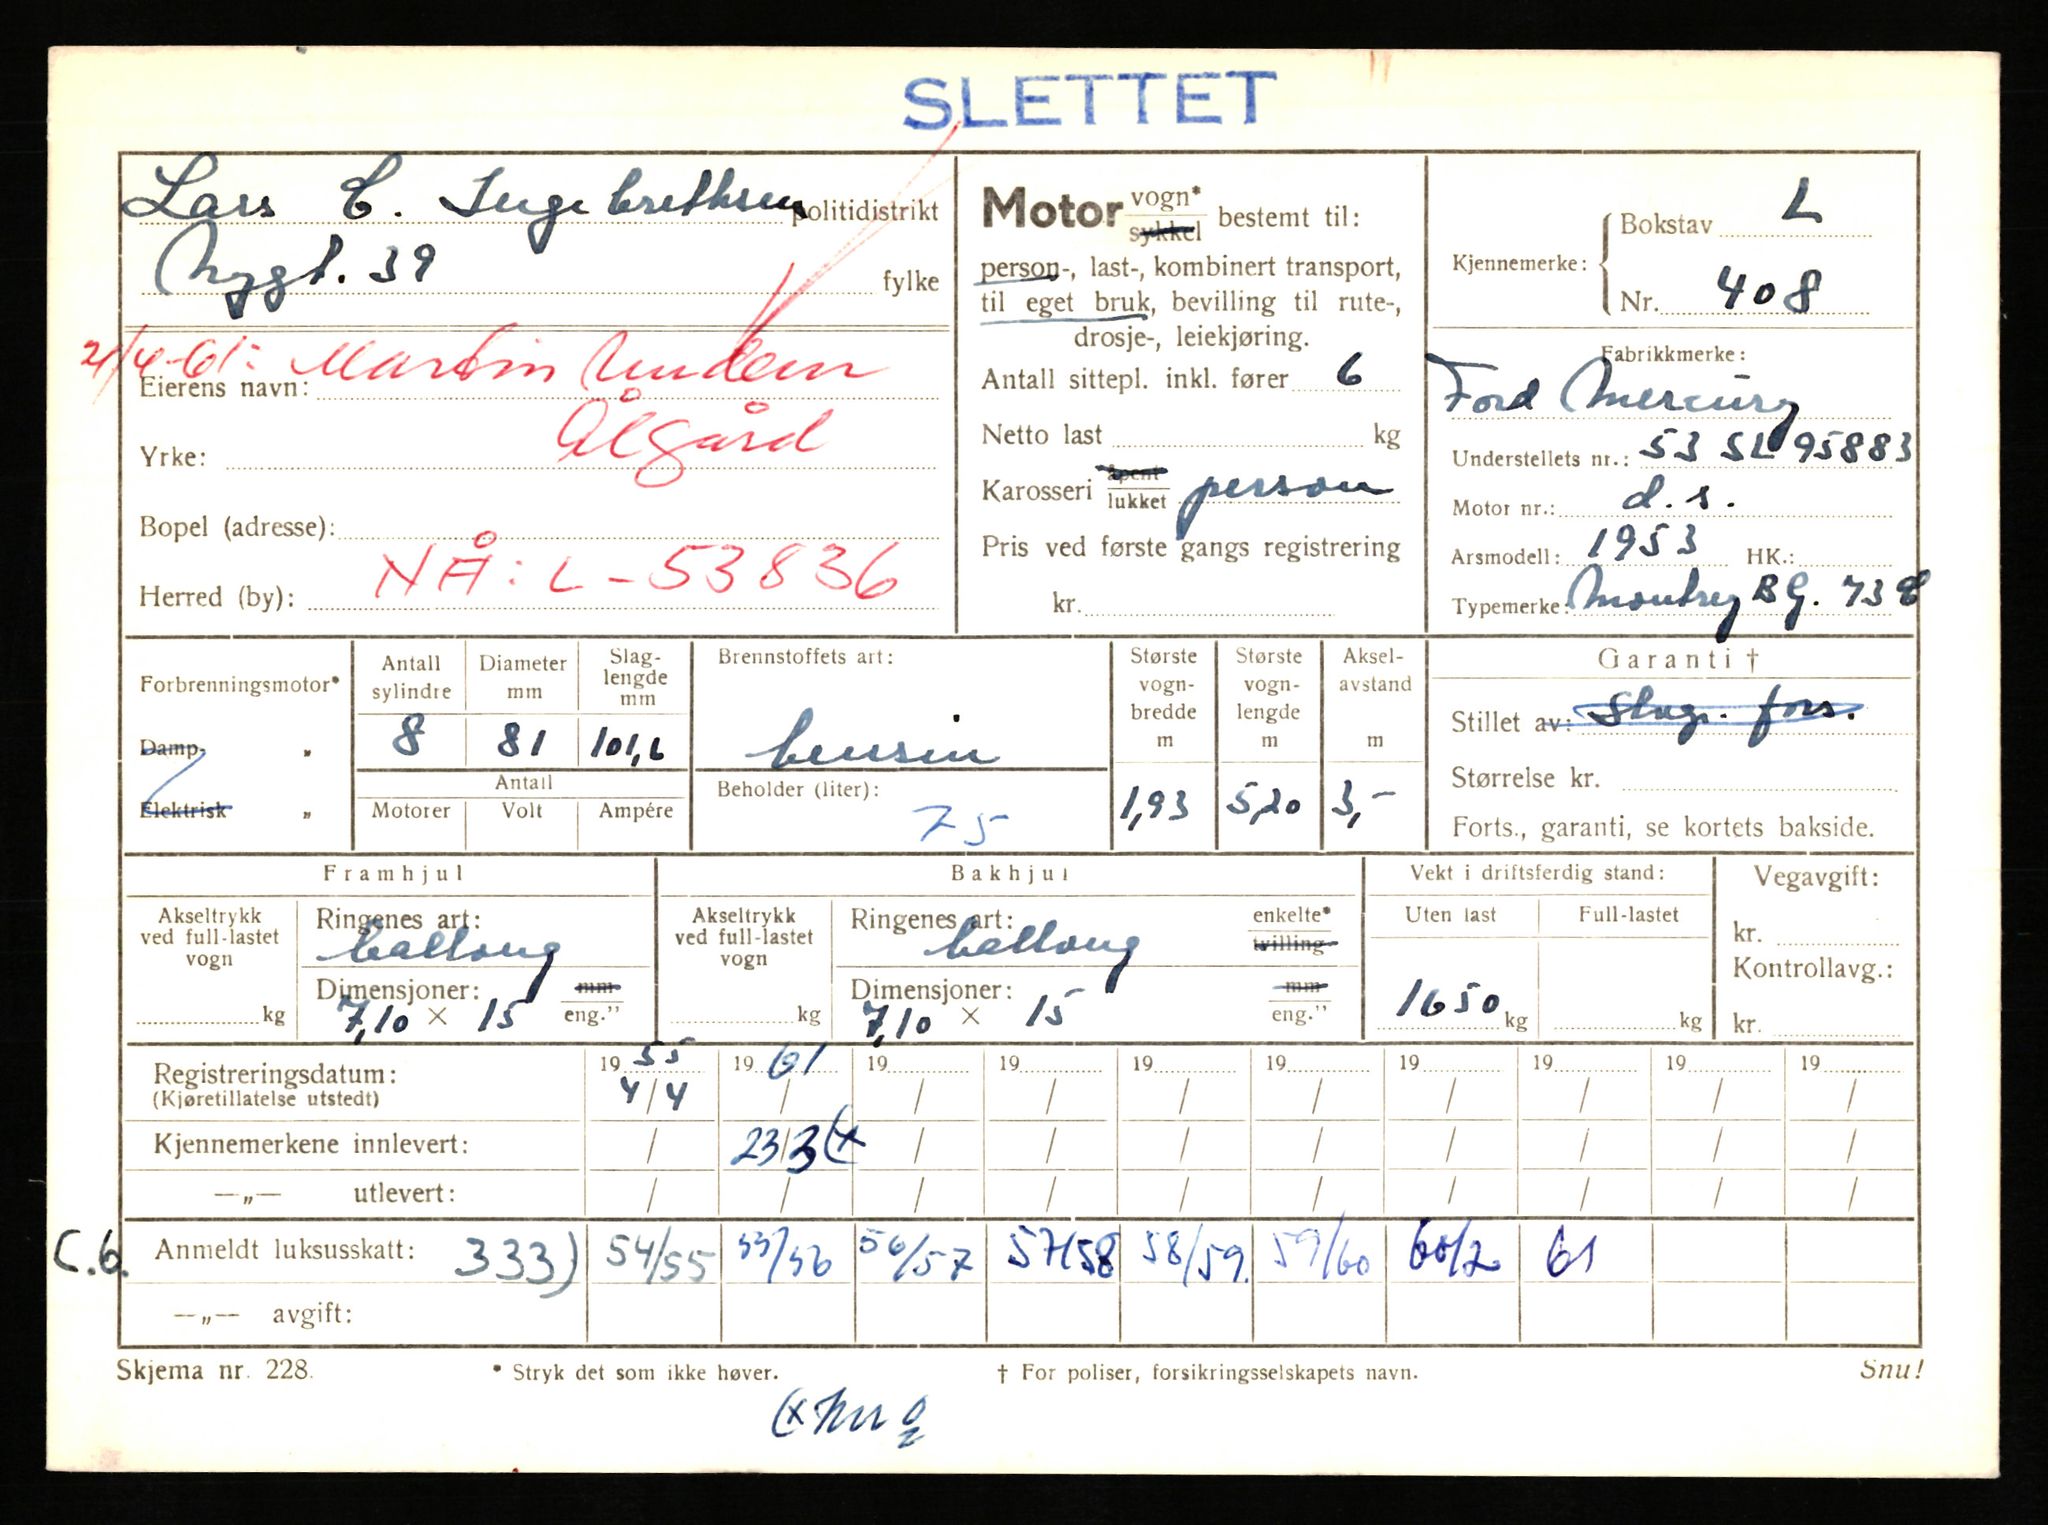 SLETTET
Lars E. Ingebrethsen politidistrikt
Nygt. 39 fylke
21/4-61: Martin Undem
Eierens navn:
Ålgård
Yrke:
Bopel (adresse):
NÅ: L - 53836
Herred (by):
Motor vogn* sykkel bestemt til:
person-, last-, kombinert transport,
til eget bruk, bevilling til rute-,
drosje-, leiekjøring.
Antall sittepl. inkl. fører 6
Netto last kg
Karosseri åpent lukket person
Pris ved første gangs registrering
kr.
Kjennemerke: Bokstav L
Nr. 408
Fabrikkmerke:
Ford Mercury
Understellets nr.: 53 SL 95883
Motor nr.: d. s.
Årsmodell: 1953 HK.:
Typemerke: Montrey BG. 738
Forbrenningsmotor*
Damp- „
Elektrisk „
Antall sylindre 8
Diameter mm 81
Slaglengde mm 101,6
Antall
Motorer Volt Ampére
Brennstoffets art:
bensin
Beholder (liter):
75
Største vognbredde m 1,93
Største vognlengde m 5,20
Akselavstand m 3,-
Garanti †
Stillet av: Stvgr. fors.
Størrelse kr.
Forts., garanti, se kortets bakside.
Framhjul
Akseltrykk ved full-lastet vogn
kg
Ringenes art:
ballong
Dimensjoner: mm
7,10 × 15 eng.”
Bakhjul
Akseltrykk ved full-lastet vogn
kg
Ringenes art: enkelte*
ballong tvilling-
Dimensjoner: mm
7,10 × 15 eng.”
Vekt i driftsferdig stand:
Uten last Full-lastet
1650 kg kg
Vegavgift:
kr.
Kontrollavg.:
kr.
Registreringsdatum: 1955 1961 19 19 19 19 19 19 19 19
(Kjøretillatelse utstedt) 4/4 / / / / / / / / /
Kjennemerkene innlevert: / 23/3 (x / / / / / / / /
—„— utlevert: / / / / / / / / / /
C.6. Anmeldt luksusskatt: 333) 54/55 55/56 56/57 57/58 58/59. 59/60 60/2 61
—„— avgift:
Skjema nr. 228. * Stryk det som ikke høver. † For poliser, forsikringsselskapets navn. Snu!